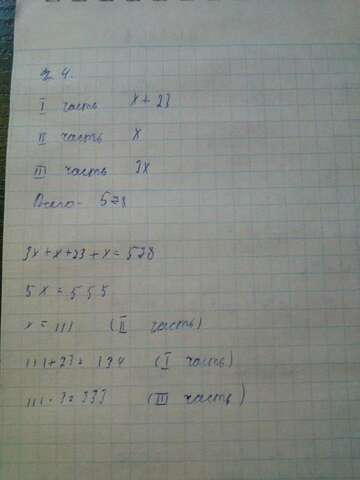 № 4.
I часть x + 23
II часть x
III часть 3x
Всего - 578
3x + x + 23 + x = 578
5x = 555
x = 111 (II часть)
111 + 23 = 134 (I часть)
111 · 3 = 333 (III часть)